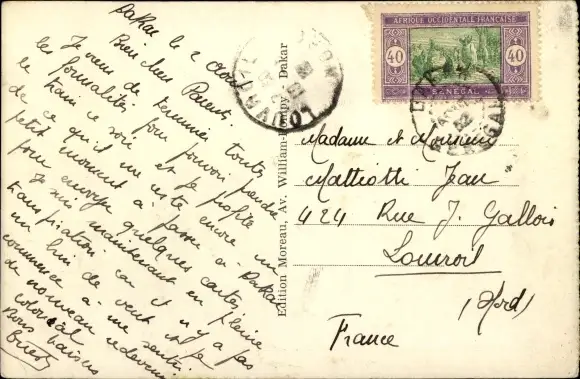 Dakar le 2 Août
Bien chers Parents.
Je viens de terminer toutes
les formalités pour pouvoir prendre
le train ce soir et je profite
de ce qu'il me reste encore un
petit moment à passer à Dakar
pour envoyer quelques cartes.
Je suis maintenant en pleine
transpiration car il n'y a pas
un brin de vent et je
commence à me sentir
de nouveau redevenir
colonial
Bons baisers
Edition Moreau, Av. William-Ponty Dakar
AFRIQUE OCCIDENTALE FRANÇAISE
40
40
SÉNÉGAL
LOUVROIL
NORD
DAKAR
SENEGAL
Madame et Monsieur
Matteotti Jean
424 Rue J. Gallois
Louvroil
(Nord)
France